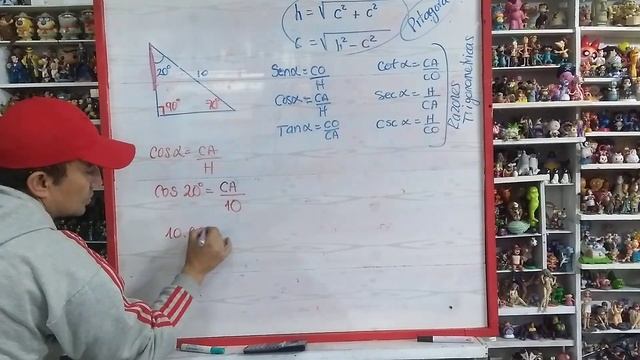 h = √c² + c²
c = √h² - c²
Pitagora
20°
10
90°
70°
Sen α = CO/H
Cos α = CA/H
Tan α = CO/CA
Cot α = CA/CO
Sec α = H/CA
Csc α = H/CO
Razones Trigonometricas
Cos α = CA/H
Cos 20° = CA/10
10.